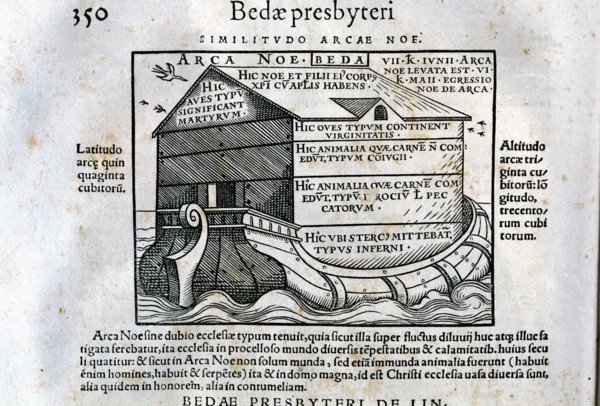 350
Bedæ presbyteri
SIMILITVDO ARCAE NOE.
ARCA NOE. BEDA
VII. K. IVNII. ARCA
NOE LEVATA EST. VI.
K. MAII. EGRESSIO
NOE DE ARCA.
HIC NOE ET FILII EI9 CORP9
XPI CV APLIS HABENS.
HIC
AVES TYPV̄
SIGNIFICANT
MARTYRVM.
HIC OVES TYPVM CONTINENT
VIRGINITATIS.
HIC ANIMALIA QVÆ CARNĒ N̄ COM
EDV̄T, TYPVM COIVGII.
HIC ANIMALIA QVÆ CARNĒ COM
EDV̄T, TYPV̄ PEC
CATORVM.
HIC VBI STERC9 MITTEBAT̄,
TYPVS INFERNI.
Latitudo
arcę quin
quaginta
cubitorū.
Altitudo
arcæ tri-
ginta cu-
bitorū: lō
gitudo,
trecento-
rum cubi
torum.
Arca Noe sine dubio ecclesiæ typum tenuit, quia sicut illa super fluctus diluuij huc atq; illuc fa
tigata ferebatur, ita ecclesia in proceloso mundo diuersis tēpestatibus & calamitatib. huius secu
li quatitur: & sicut in Arca Noe non solum munda, sed etiā immunda animalia fuerunt (habuit
enim homines, habuit & serpētes) ita & in domo magna, id est Christi ecclesia uasa diuersa sunt,
alia quidem in honorem, alia in contumeliam.
BEDAE PRESBYTERI DE LIN-